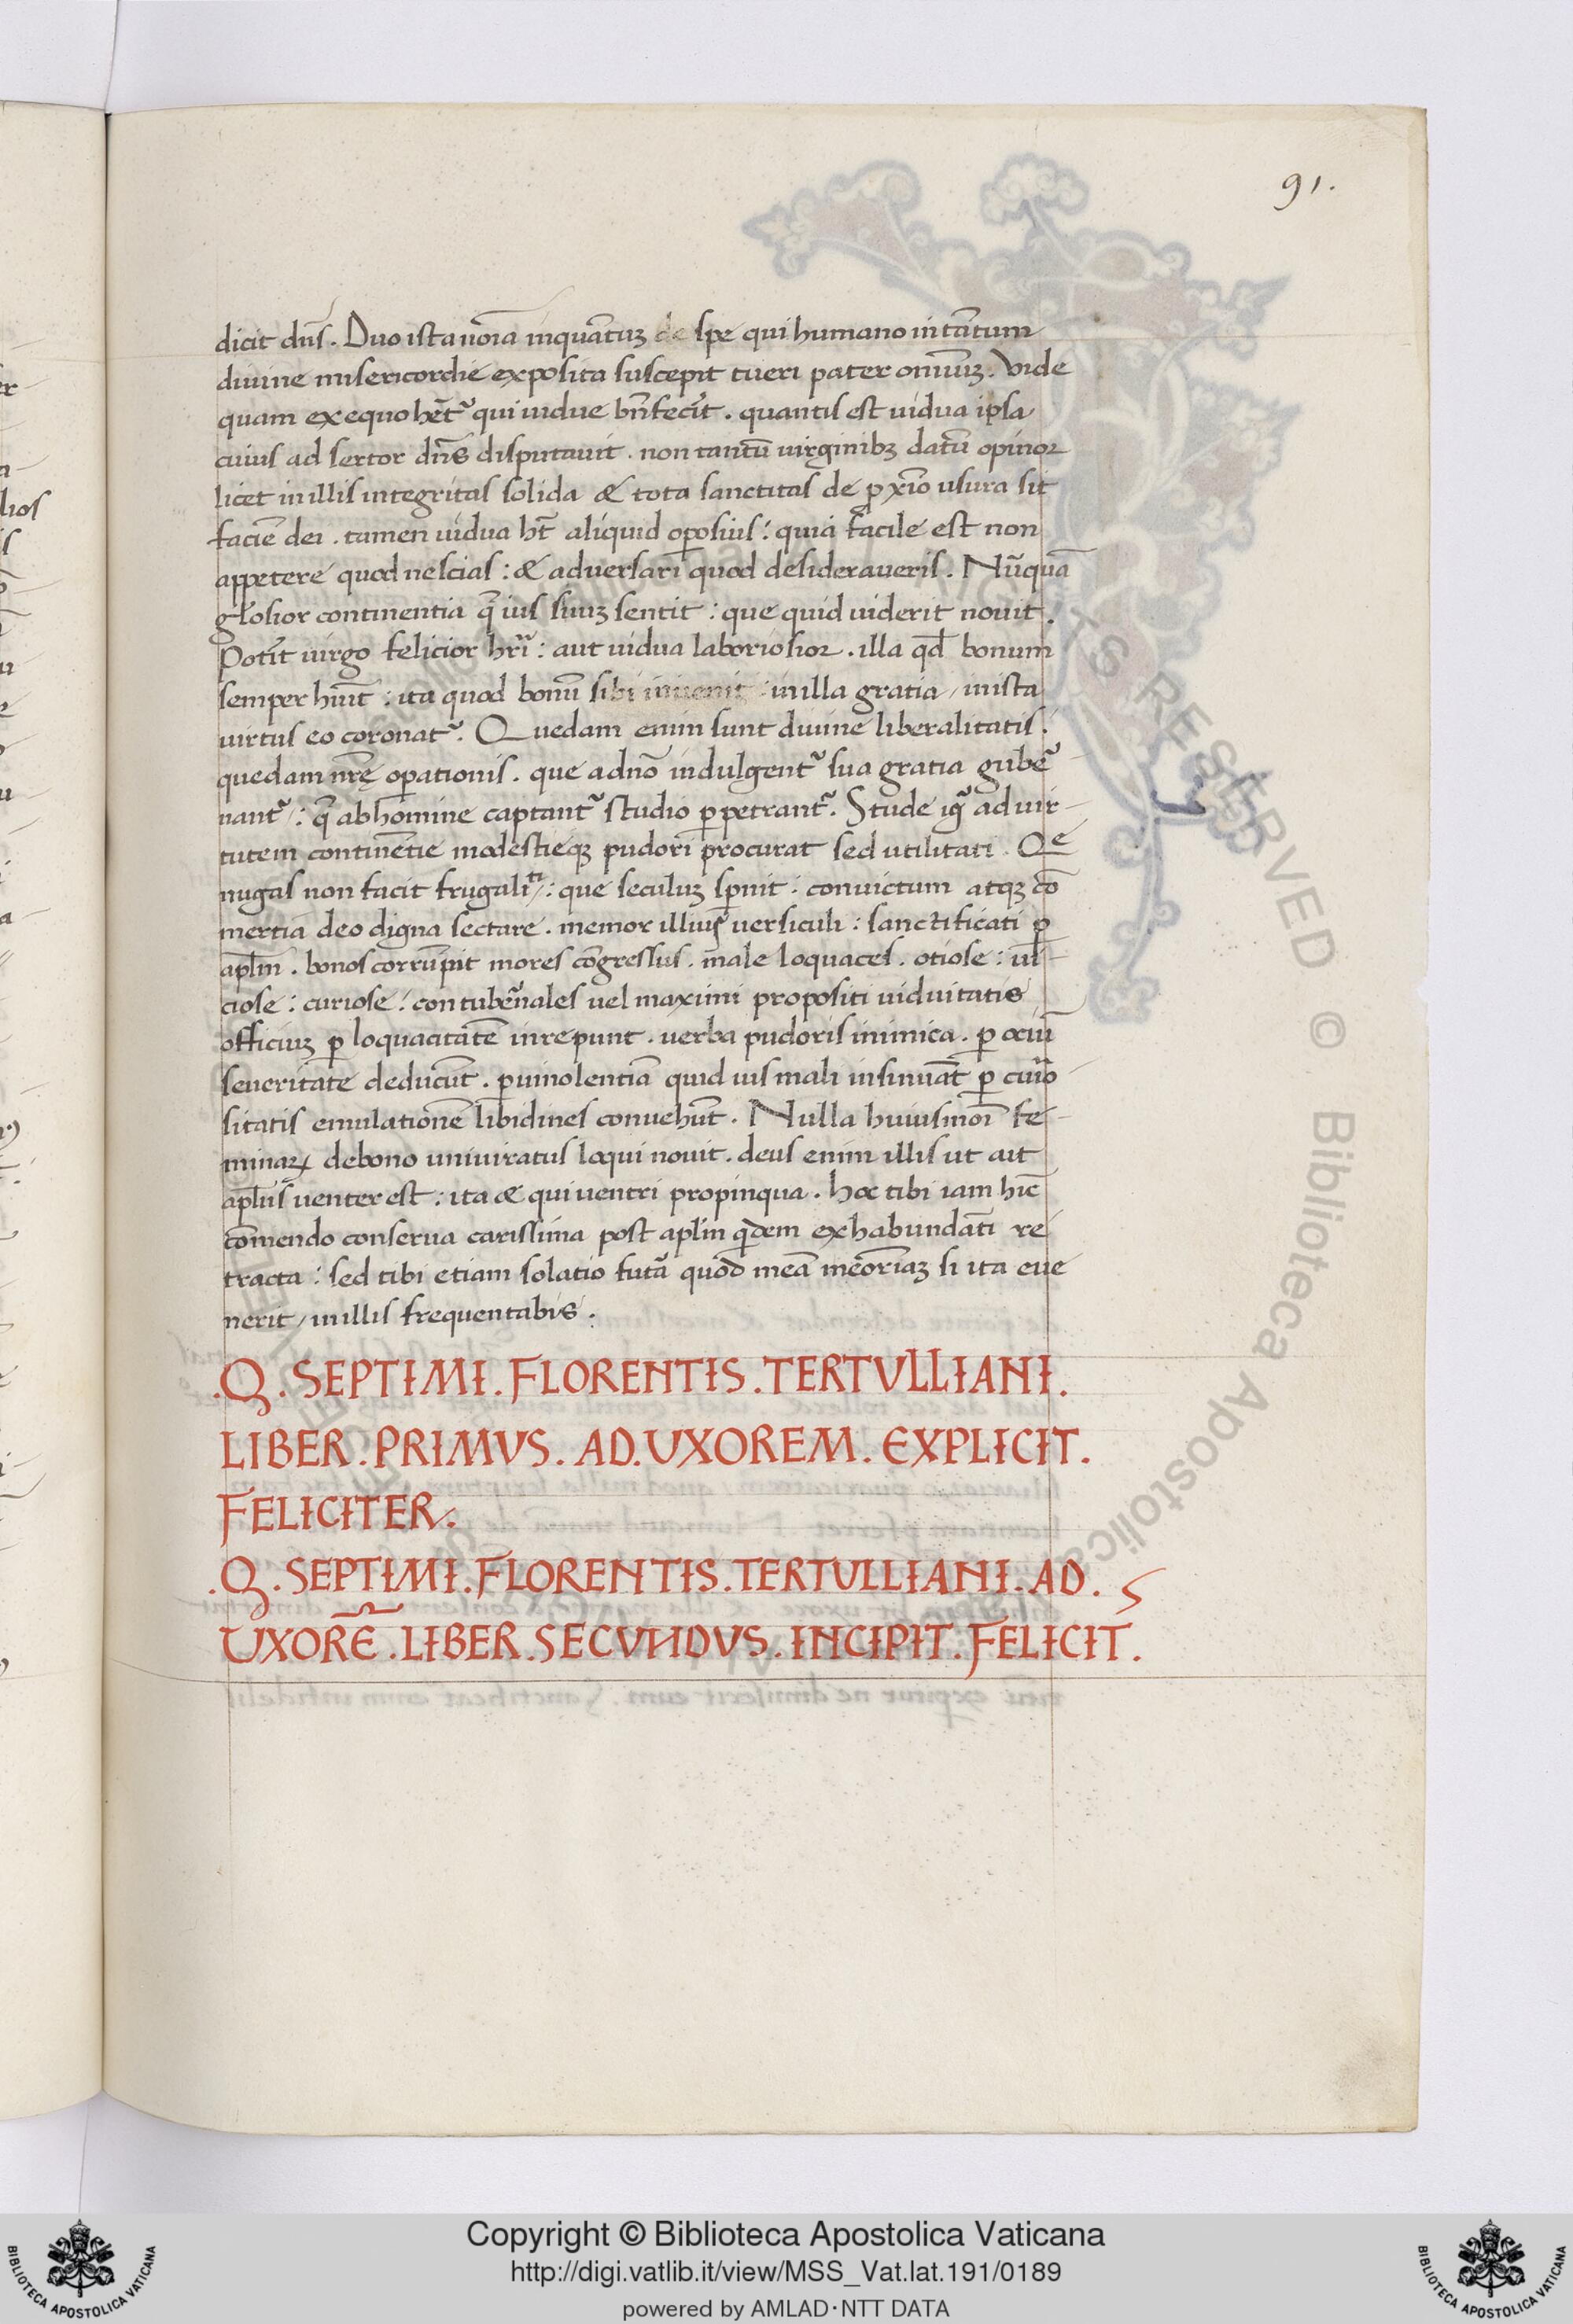 91.
dicit dn̄s. Duo ista noīa inquātuʒ de spe qui humano in tātum
diuine misericordie exposita suscepit tueri pater omniuʒ. Vide
quam ex equo hētᷣ qui uidue bn̄fec̄it. quantis est uidua ipsa
cuius ad sertor dn̄s disputauit. non tantū uirginibʒ datū opinor
licet in illis integritas solida & tota sanctitas de ꝓxīo usura sit
faciē dei. tamen uidua ht̄ aliquid oꝑosius: quia facile est non
appetere quod nescias: & adversari quod desideraveris. Nūquā
gl̄osior continentia q̄ ius suuʒ sentit: que quid uiderit nouit.
Potīt uirgo felicior hr̄i: aut uidua laboriosior. illa qd̄ bonum
semper hūit: ita quod bonū sibi inuenit: in illa gratia / in ista
uirtus eo coronatᷣ. Quedam enim sunt diuine liberalitatis:
quedam nr̄ę oꝑationis. que adnō indulgentᷣ sua gratia gubē
nantᷣ: q̄ ab homine captantᷣ studio ꝑpetrantᷣ. Stude igᷣ ad uir
tutem continētie modestieqʒ pudori procurat sed utilitati. Qe
nugas non facit frugalitn̄: que seculuʒ sp̄nit: convictum atqʒ cō
mertia deo digna sectare. memor illius uersiculi: sanctificati ꝑ
apl̄m. bonos corrūpit mores cōgressus. male loquaces. otiose: ui
ciose: curiose: contubēnales uel maximi propositi uiduitatis
officiuʒ ꝑ loquacitatē inrepunt. uerba pudoris inimica. ꝑ ociū
seueritate deducūt. ꝑ uinolentiā quid uis mali insinuāt ꝑ curio
sitatis emulationē libidines convehūt. Nulla huiusmoī fe
minaꝝ de bono uniuiratus loqui nouit. deus enim illis ut ait
apl̄us uenter est: ita & qui uentri propinqua. hoc tibi iam hīc
cōmendo conserua carissima post apl̄m qd̄em exhabundāti re
tracta: sed tibi etiam solatio futā quod meā meōriaʒ si ita eue
nerit / in illis frequentabis.
.Q. SEPTIMI. FLORENTIS. TERTVLLIANI.
LIBER. PRIMVS. AD. UXOREM. EXPLICIT.
FELICITER.
.Q. SEPTIMI. FLORENTIS. TERTULLIANI. AD.
UXORĒ. LIBER. SECVNDVS. INCIPIT. FELICIT.
RESERVED © Biblioteca Apostolica
Copyright © Biblioteca Apostolica Vaticana
http://digi.vatlib.it/view/MSS_Vat.lat.191/0189
powered by AMLAD·NTT DATA
BIBLIOTECA APOSTOLICA VATICANA
BIBLIOTECA APOSTOLICA VATICANA